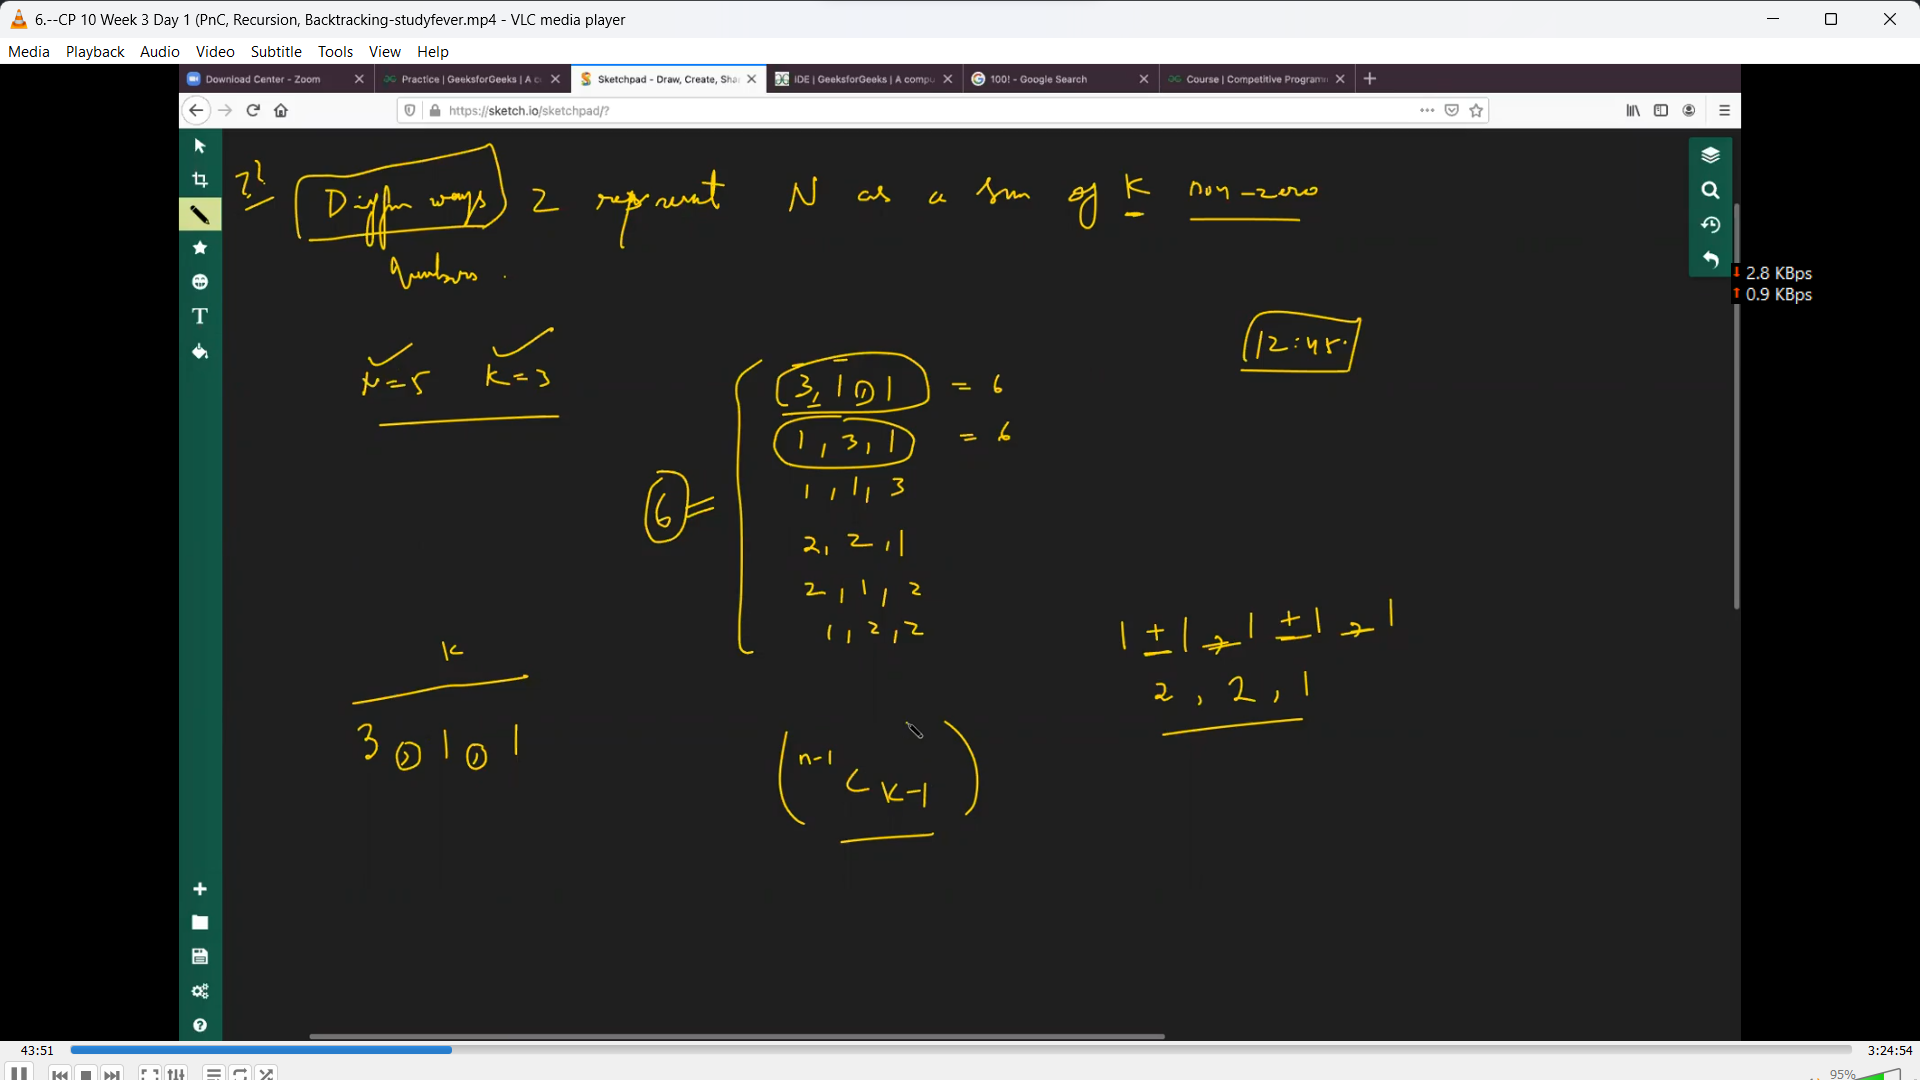 6.--CP 10 Week 3 Day 1 (PnC, Recursion, Backtracking-studyfever.mp4 - VLC media player
Media Playback Audio Video Subtitle Tools View Help
Download Center - Zoom
Practice | GeeksforGeeks | A c
Sketchpad - Draw, Create, Sha
IDE | GeeksforGeeks | A compu
100! - Google Search
Course | Competitive Program
https://sketch.io/sketchpad/?
??
Differ ways 2 represent N as a sum of K non-zero
numbers.
2.8 KBps
0.9 KBps
12:45.
N=5 K=3
3, 1, 1 = 6
1, 3, 1 = 6
1, 1, 3
6 =
2, 2, 1
2, 1, 2
1, 2, 2
1 + 1 , 1 + 1 , 1
2, 2, 1
K
3, 1, 1
(n-1 C K-1)
T
43:51
3:24:54
95%